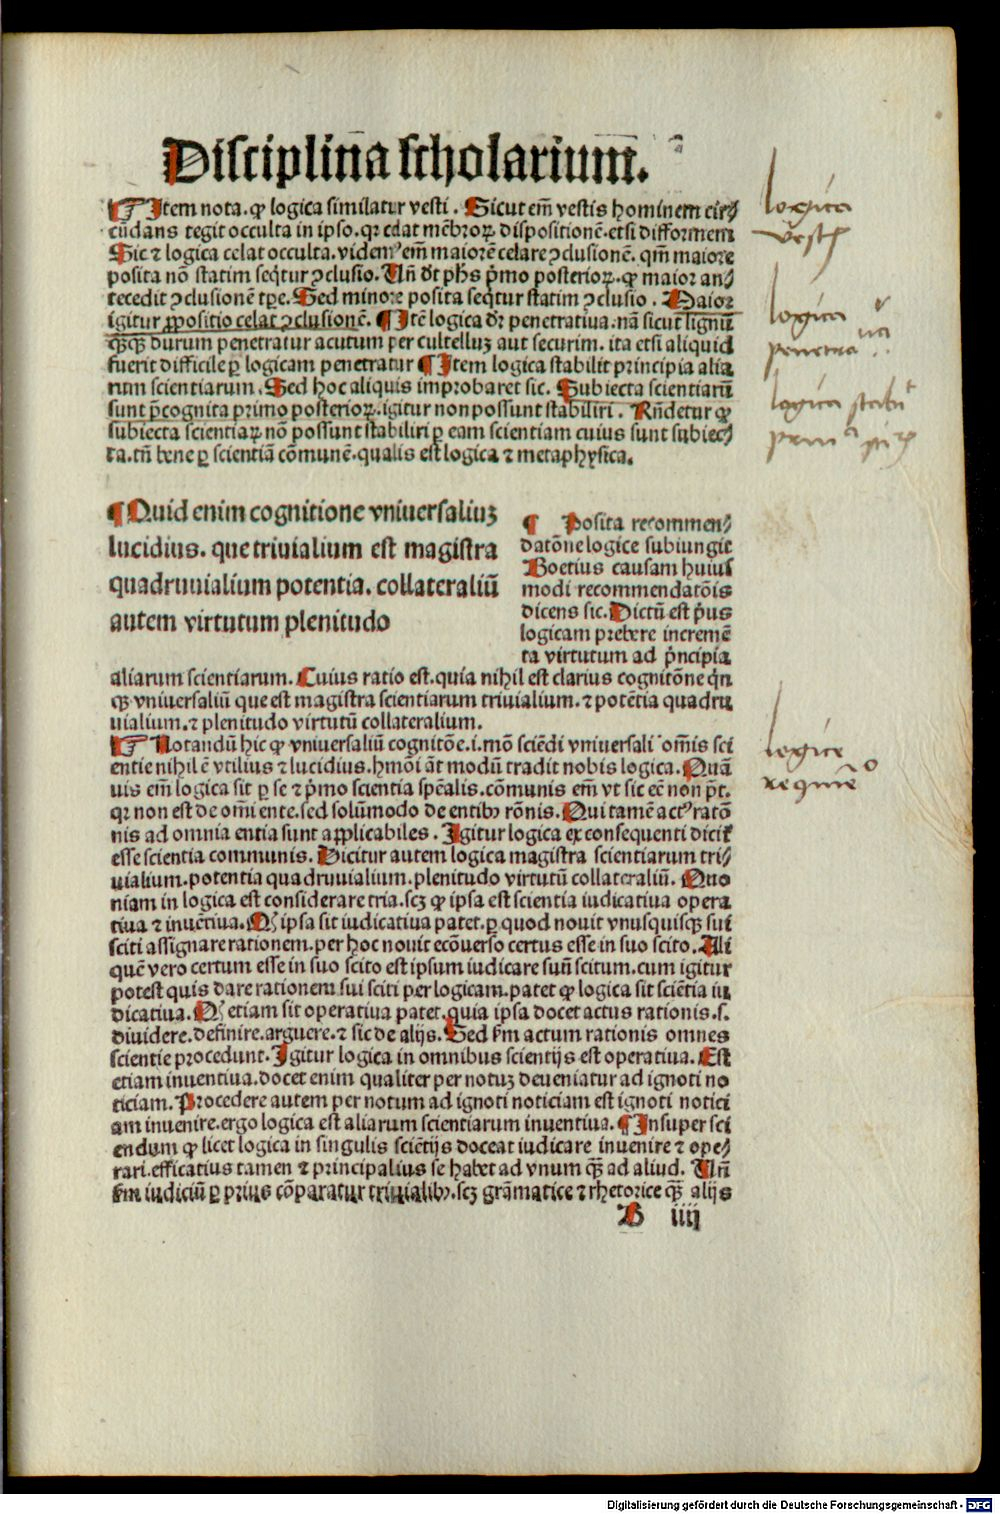 Disciplina scholarium.
¶ Item nota. ꝙ logica similatur vesti. Sicut em̄ vestis hominem cir⸗
cūdans tegit occulta in ipso. qꝛ celat mēbroꝝ dispositionē. etsi difformem
Sic ⁊ logica celat occulta. videmꝰ em̄ maiorē celare ꝯclusionē. qm̄ maiore
posita nō statim seqͥtur ꝯclusio. Un̄ dt̄ ph̄s p̄mo posterioꝝ. ꝙ maior an⸗
tecedit ꝯclusionē tꝑe. Sed minore posita seqͥtur statim ꝯclusio. Maior
igitur ꝓpositio celat ꝯclusionē. ¶ Itē logica dr̄ penetratiua. nā sicut lignū
qͣ̄qͣ̄ durum penetratur acutum per cultelluꝫ aut securim. ita etsi aliquid
fuerit difficile ꝑ logicam penetratur ¶ Item logica stabilit principia alia
rum scientiarum. Sed hoc aliquis improbaret sic. Subiecta scientiarū
sunt p̄cognita primo posterioꝝ. igitur non possunt stabiliri. Rn̄detur ꝙ
subiecta scientiaꝝ nō possunt stabiliri ꝑ eam scientiam cuius sunt subiec⸗
ta. tn̄ bene ꝑ scientiā cōmunē. qualis est logica ⁊ metaphysica.
¶ Quid enim cognitione vniuersaliuꝫ
lucidius. que triuialium est magistra
quadruuialium potentia. collateraliū
autem virtutum plenitudo
¶ Posita recommen⸗
datōne logice subiungit
Boetius causam huius
modi recommendatōis
dicens sic. Dictū est p̄us
logicam prebere increme̅
ta virtutum ad p̄ncipia
aliarum scientiarum. Cuius ratio est. quia nihil est clarius cognitōne qͣn
qꝫ vniuersaliū que est magistra scientiarum triuialium. ⁊ potētia quadru
uialium. ⁊ plenitudo virtutū collateralium.
¶ Notandū hic ꝙ vniuersaliū cognitōe. i. mō sciēdi vniuersali om̄is sci
entie nihil ē vtilius ⁊ lucidius. hmōi āt modū tradit nobis logica. Quā
uis em̄ logica sit ꝑ se ⁊ p̄mo scientia sp̄ealis. cōmunis em̄ vt sic eē non pt̄.
qꝛ non est de om̄i ente. sed solūmodo de entibꝰ rōnis. Qui tamē actꝰ ratō
nis ad omnia entia sunt aꝓplicabiles. Igitur logica ex consequenti dicit̄
esse scientia communis. Dicitur autem logica magistra scientiarum tri⸗
uialium. potentia quadruuialium. plenitudo virtutū collateraliū. Quo
niam in logica est considerare tria. scꝫ ꝙ ipsa est scientia iudicatiua opera
tiua ⁊ inuētiua. Ꝙ ipsa sit iudicatiua patet. ꝑ quod nouit vnusquisqꝫ sui
sciti assignare rationem. per hoc nouit ecōuerso certus esse in suo scito. Ali
quē vero certum esse in suo scito est ipsum iudicare suū scitum. cum igitur
potest quis dare rationem sui sciti per logicam. patet ꝙ logica sit sciētia iu
dicatiua. Ꝙ etiam sit operatiua patet. quia ipsa docet actus rationis. s.
diuidere. definire. arguere. ⁊ sic de alijs. Sed ẜm actum rationis omnes
scientie procedunt. Igitur logica in omnibus scientijs est operatiua. Est
etiam inuentiua. docet enim qualiter per notuꝫ deueniatur ad ignoti no
ticiam. Procedere autem per notum ad ignoti noticiam est ignoti notici
am inuenire. ergo logica est aliarum scientiarum inuentiua. ¶ Insuper sci
endum ꝙ licet logica in singulis sciētijs doceat iudicare inuenire ⁊ ope⸗
rari. efficatius tamen ⁊ principalius se habet ad vnum qͣ̄ ad aliud. Un̄
ẜm iudiciū ꝑ prius cōparatur triuialibꝰ. scꝫ grāmatice ⁊ rhetorice qͣ̄ alijs
B iiij
logica
vesti
logica
penetra ua
logica stabi
prin
logice
Digitalisierung gefördert durch die Deutsche Forschungsgemeinschaft - DFG